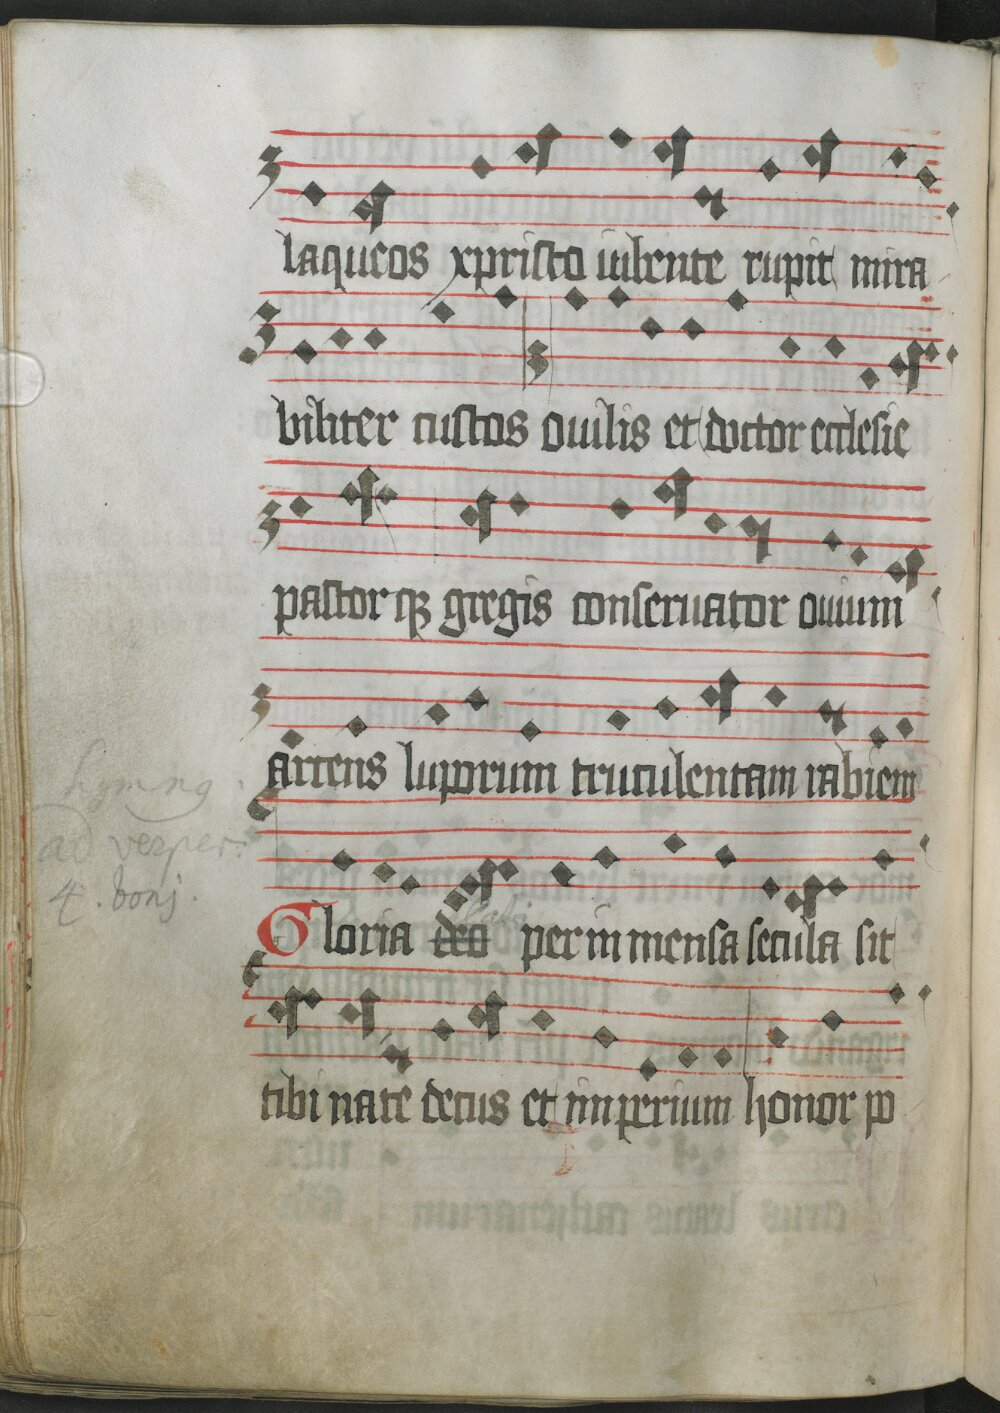 laqueos xpristo iubente rupit mira
biliter custos ouilis et doctor ecclesie
pastorqꝫ gregis conseruator ouium
arcens luporum truculentam rabiem
Gloria deo per inmensa secula sit
tibi nate decus et imperium honor po
ad vesper: